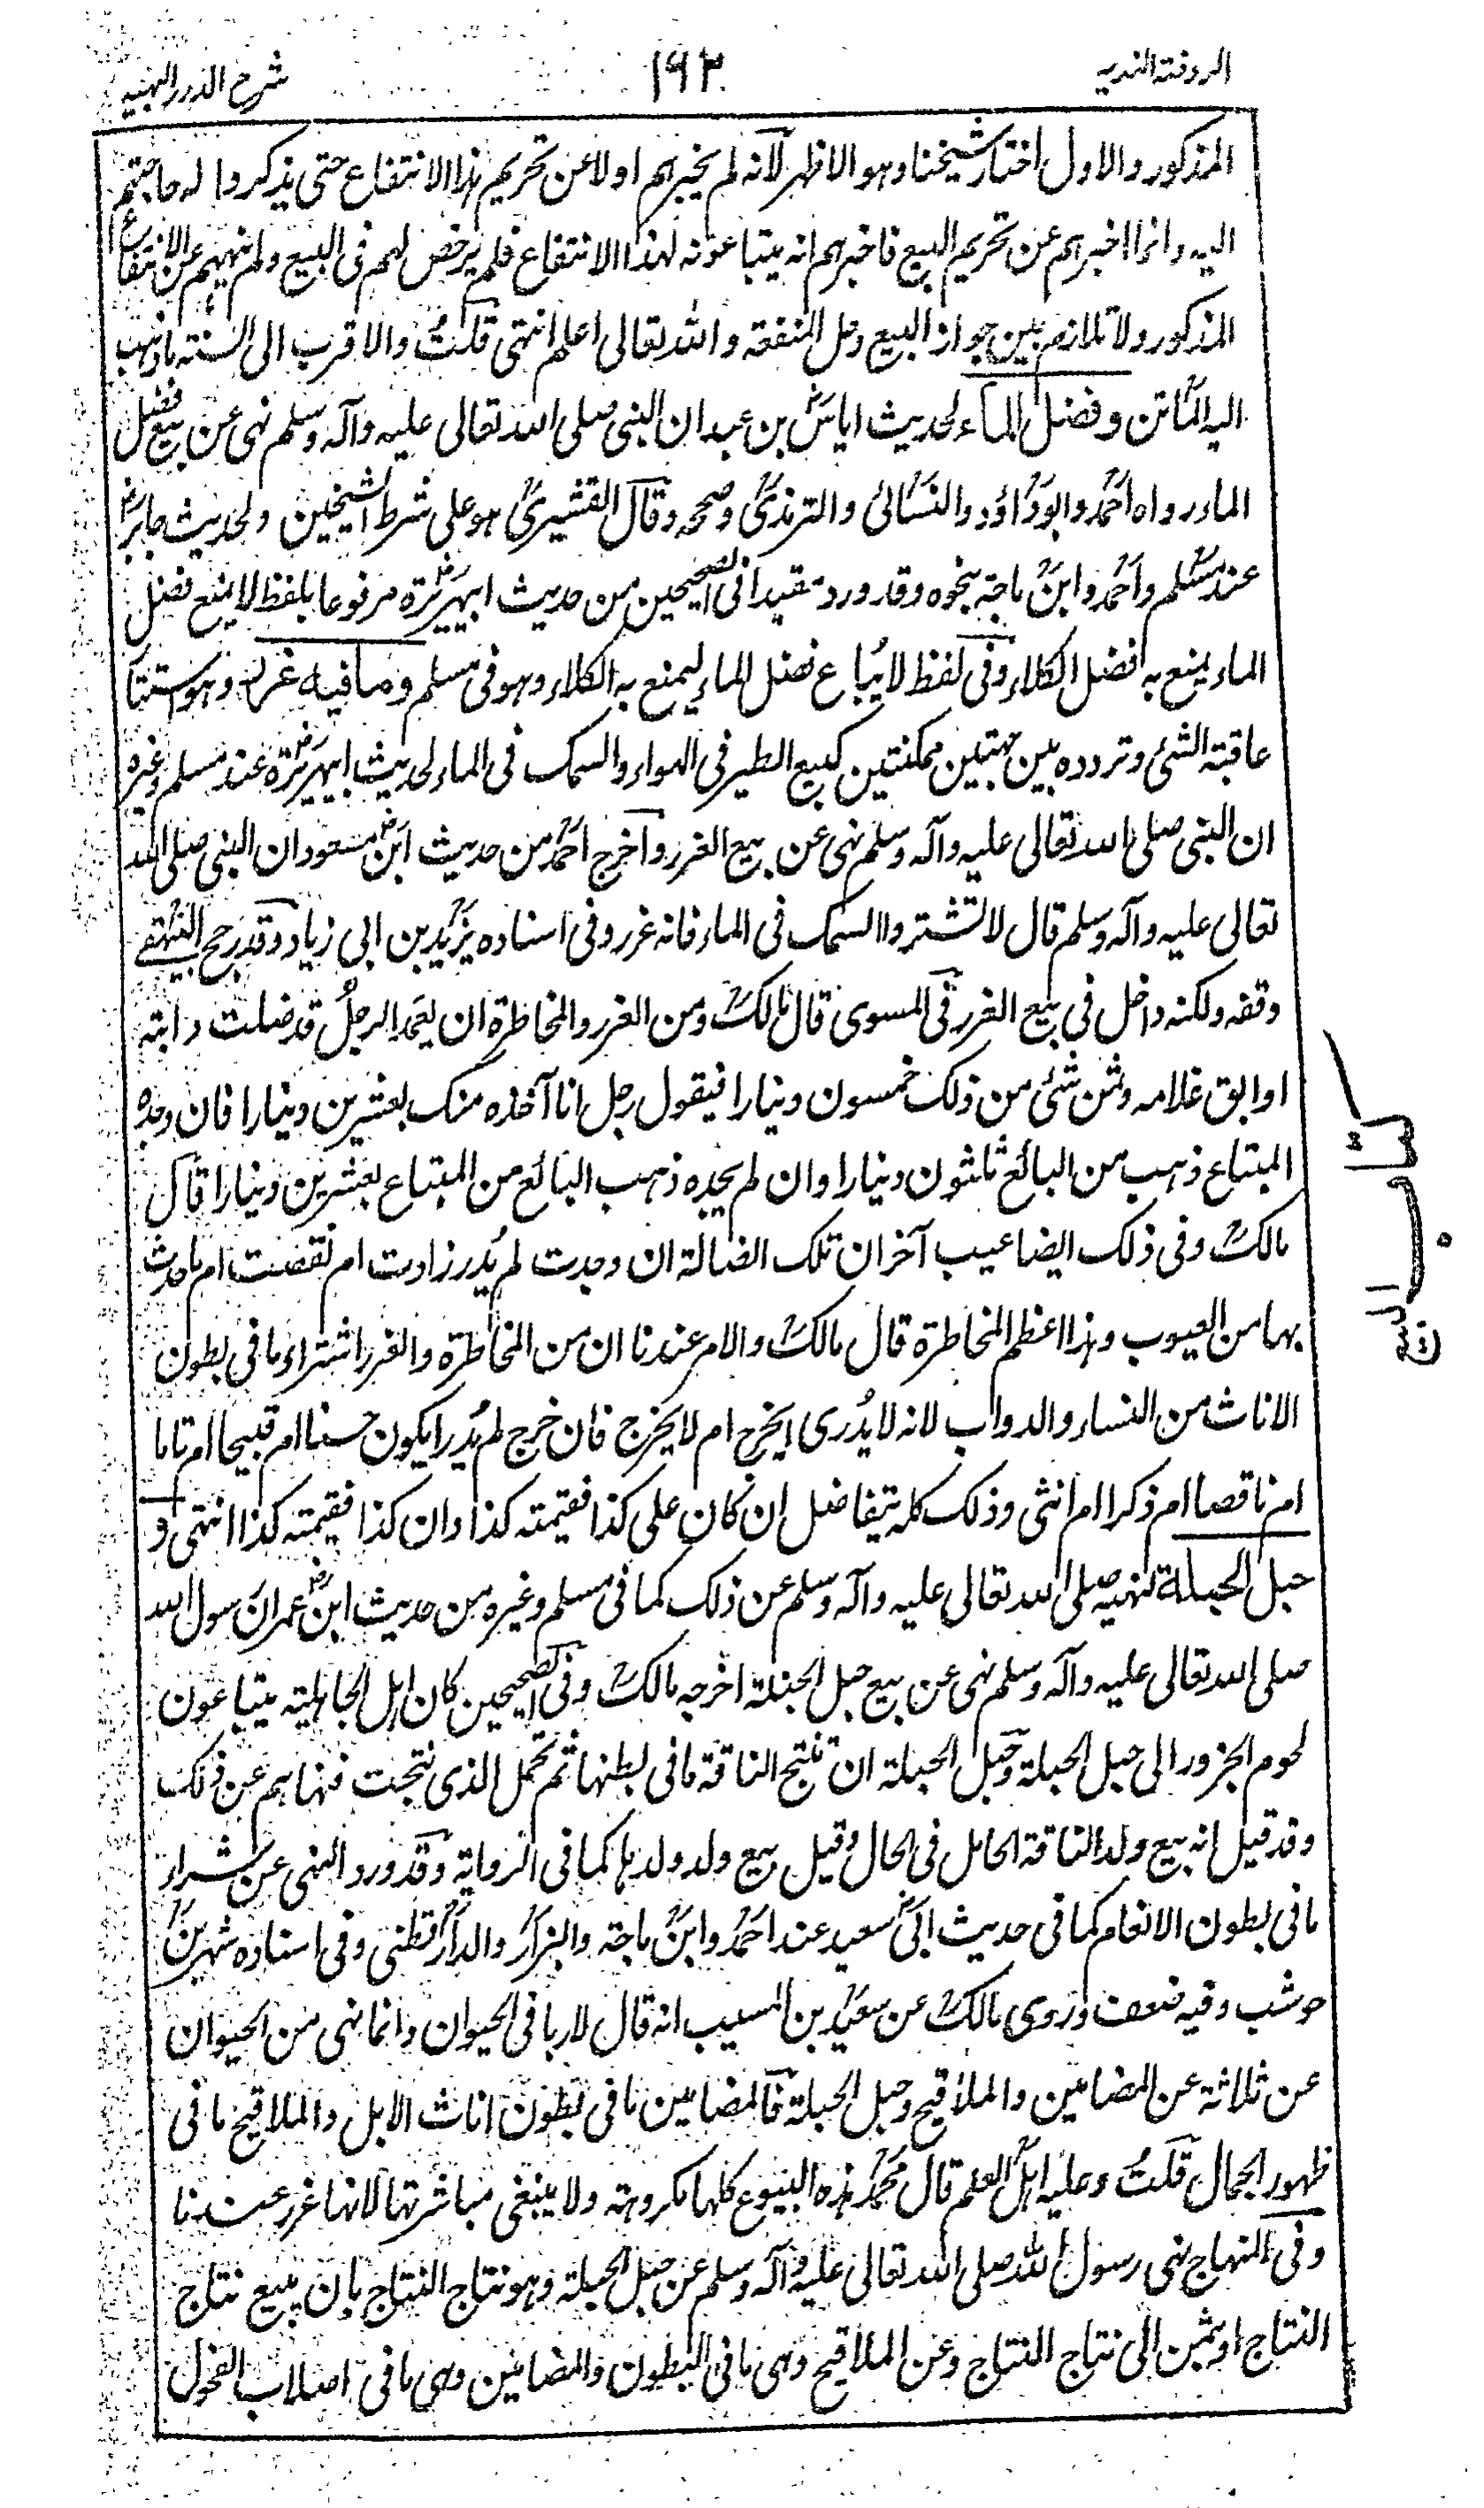 الروضة الندية
١٩٢
شرح الدرر البهية
المذكور والاول اختار شيخنا وهو الاظهر لانه لم يخبرهم اولا عن تحريم هذا الانتفاع حتى يذكروا له حاجتهم
اليه وانما اخبرهم عن تحريم البيع فاخبرهم انه يتباعونه لهذا الانتفاع فلم يرخص لهم فى البيع ولم ينههم عن الانتفاع
المذكور ولا تلازم بين جواز البيع وحل المنفعة والله تعالى اعلم انتهى قلت والاقرب الى السنة ما ذهب
اليه الماتن وفضل الماء لحديث اياس بن عبد ان النبى صلى الله تعالى عليه وآله وسلم نهى عن بيع فضل
الماء رواه احمد وابو داؤد والنسائى والترمذى وصححه وقال القشيرى هو على شرط الشيخين ولحديث جابر
عند مسلم واحمد وابن ماجة بنحوه وقد ورد مقيدا فى الصحيحين من حديث ابيهريرة مرفوعا بلفظ لا يمنع فضل
الماء ليمنع به فضل الكلاء وفى لفظ لا يباع فضل الماء ليمنع به الكلاء وهو فى مسلم وما فيه غرر وهو استتار
عاقبة الشئ وتردده بين جهتين ممكنتين كبيع الطير فى الهواء والسمك فى الماء لحديث ابيهريرة عند مسلم وغيره
ان النبى صلى الله تعالى عليه وآله وسلم نهى عن بيع الغرر واخرج احمد من حديث ابن مسعود ان النبى صلى الله
تعالى عليه وآله وسلم قال لا تشتروا السمك فى الماء فانه غرر وفى اسناده يزيد بن ابى زياد وقد رجح البيهقى
وقفه ولكنه داخل فى بيع الغرر فى المسوى قال مالك ومن الغرر والمخاطرة ان يعمد الرجل قد ضلت دابته
او ابق غلامه وثمن شئ من ذلك خمسون دينارا فيقول رجل انا آخذه منك بعشرين دينارا فان وجده
المبتاع ذهب من البائع ثلثون دينارا وان لم يجده ذهب البائع من المبتاع بعشرين دينارا قال
مالك وفى ذلك ايضا عيب آخر ان تلك الضالة ان وجدت لم يدر زادت ام نقصت ام ما حدث
بها من العيوب وهذا اعظم المخاطرة قال مالك والامر عندنا ان من المخاطرة والغرر اشتراء ما فى بطون
الاناث من النساء والدواب لانه لا يدرى ايخرج ام لا يخرج فان خرج لم يدر ايكون حسنا ام قبيحا ام تاما
ام ناقصا ام ذكرا ام انثى وذلك كله يتفاضل ان كان على كذا فقيمته كذا وان كذا فقيمته كذا انتهى و
حبل الحبلة لنهيه صلى الله تعالى عليه وآله وسلم عن ذلك كما فى مسلم وغيره من حديث ابن عمران رسول الله
صلى الله تعالى عليه وآله وسلم نهى عن بيع حبل الحبلة اخرجه مالك وفى الصحيحين كان اهل الجاهلية يتباعون
لحوم الجزور الى حبل الحبلة وحبل الحبلة ان تنتج الناقة ما فى بطنها ثم تحمل الذى نتجت فنهاهم عن ذلك
وقد قيل انه بيع ولد الناقة الحامل فى الحال وقيل بيع ولد ولدها كما فى الرواية وقد ورد النهى عن شراء
ما فى بطون الانعام كما فى حديث ابى سعيد عند احمد وابن ماجة والبزار والدارقطنى وفى اسناده شهر بن
حوشب وفيه ضعف وروى مالك عن سعيد بن المسيب انه قال لا ربا فى الحيوان وانما نهى من الحيوان
عن ثلاثة عن المضامين والملاقيح وحبل الحبلة فالمضامين ما فى بطون اناث الابل والملاقيح ما فى
ظهور الجمال قلت وعليه اهل العلم قال محمد هذه البيوع كلها مكروهة ولا ينبغى مباشرتها لانها غرر عندنا
وفى المنهاج نهى رسول الله صلى الله تعالى عليه وآله وسلم عن حبل الحبلة وهو نتاج النتاج بان يبيع نتاج
النتاج او بثمن الى نتاج النتاج وعن الملاقيح وهى ما فى البطون والمضامين وهى ما فى اصلاب الفحول